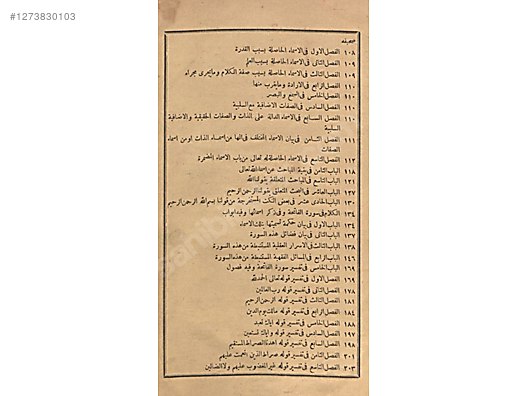 #1273830103
صحيفه
١٠٨ الفصل الاول فى الاسماء الحاصلة بسبب القدرة
١٠٩ الفصل الثانى فى الاسماء الحاصلة بسبب العلم
١٠٩ الفصل الثالث فى الاسماء الحاصلة بسبب صفة الكلام وما يجرى مجراه
١١٠ الفصل الرابع فى الارادة وما يقرب منها
١١٠ الفصل الخامس فى السمع والبصر
١١٠ الفصل السادس فى الصفات الاضافية مع السلبية
١١٠ الفصل السابع فى الاسماء الدالة على الذات والصفات الحقيقية والاضافية
السلبية
١١١ الفصل الثامن فى بيان الاسماء المختلف فى انها من اسماء الذات او من اسماء
الصفات
١١٢ الفصل التاسع فى الاسماء الحاصلة لله تعالى من باب الاسماء المضمرة
١١٨ الباب الثامن فى بقية المباحث عن اسماء الله تعالى
١٢١ الباب التاسع فى المباحث المتعلقة بقولنا الله
١٢٧ الباب العاشر فى البحث المتعلق بقولنا الرحمن الرحيم
١٣٠ الباب الحادى عشر فى بعض النكت المستخرجة من قولنا بسم الله الرحمن الرحيم
١٣٤ الكلام فى سورة الفاتحة وفى ذكر اسمائها وفيه ابواب
١٣٤ الباب الاول
١٣٧ الباب الثانى فى بيان فضائل هذه السورة
١٣٨ الباب الثالث فى الاسرار العقلية المستنبطة من هذه السورة
١٤٦ الباب الرابع فى المسائل الفقهية المستنبطة من هذه السورة
١٦٩ الباب الخامس فى تفسير سورة الفاتحة وفيه فصول
١٦٩ الفصل الاول فى تفسير قوله تعالى الحمد لله
١٧٨ الفصل الثانى فى تفسير قوله رب العالمين
١٨١ الفصل الثالث فى تفسير قوله الرحمن الرحيم
١٨٤ الفصل الرابع فى تفسير قوله مالك يوم الدين
١٨٨ الفصل الخامس فى تفسير قوله اياك نعبد
١٩٧ الفصل السادس فى تفسير قوله واياك نستعين
١٩٨ الفصل السابع فى تفسير قوله اهدنا الصراط المستقيم
٢٠١ الفصل الثامن فى تفسير قوله صراط الذين انعمت عليهم
٢٠٣ الفصل التاسع فى تفسير قوله غير المغضوب عليهم ولا الضالين